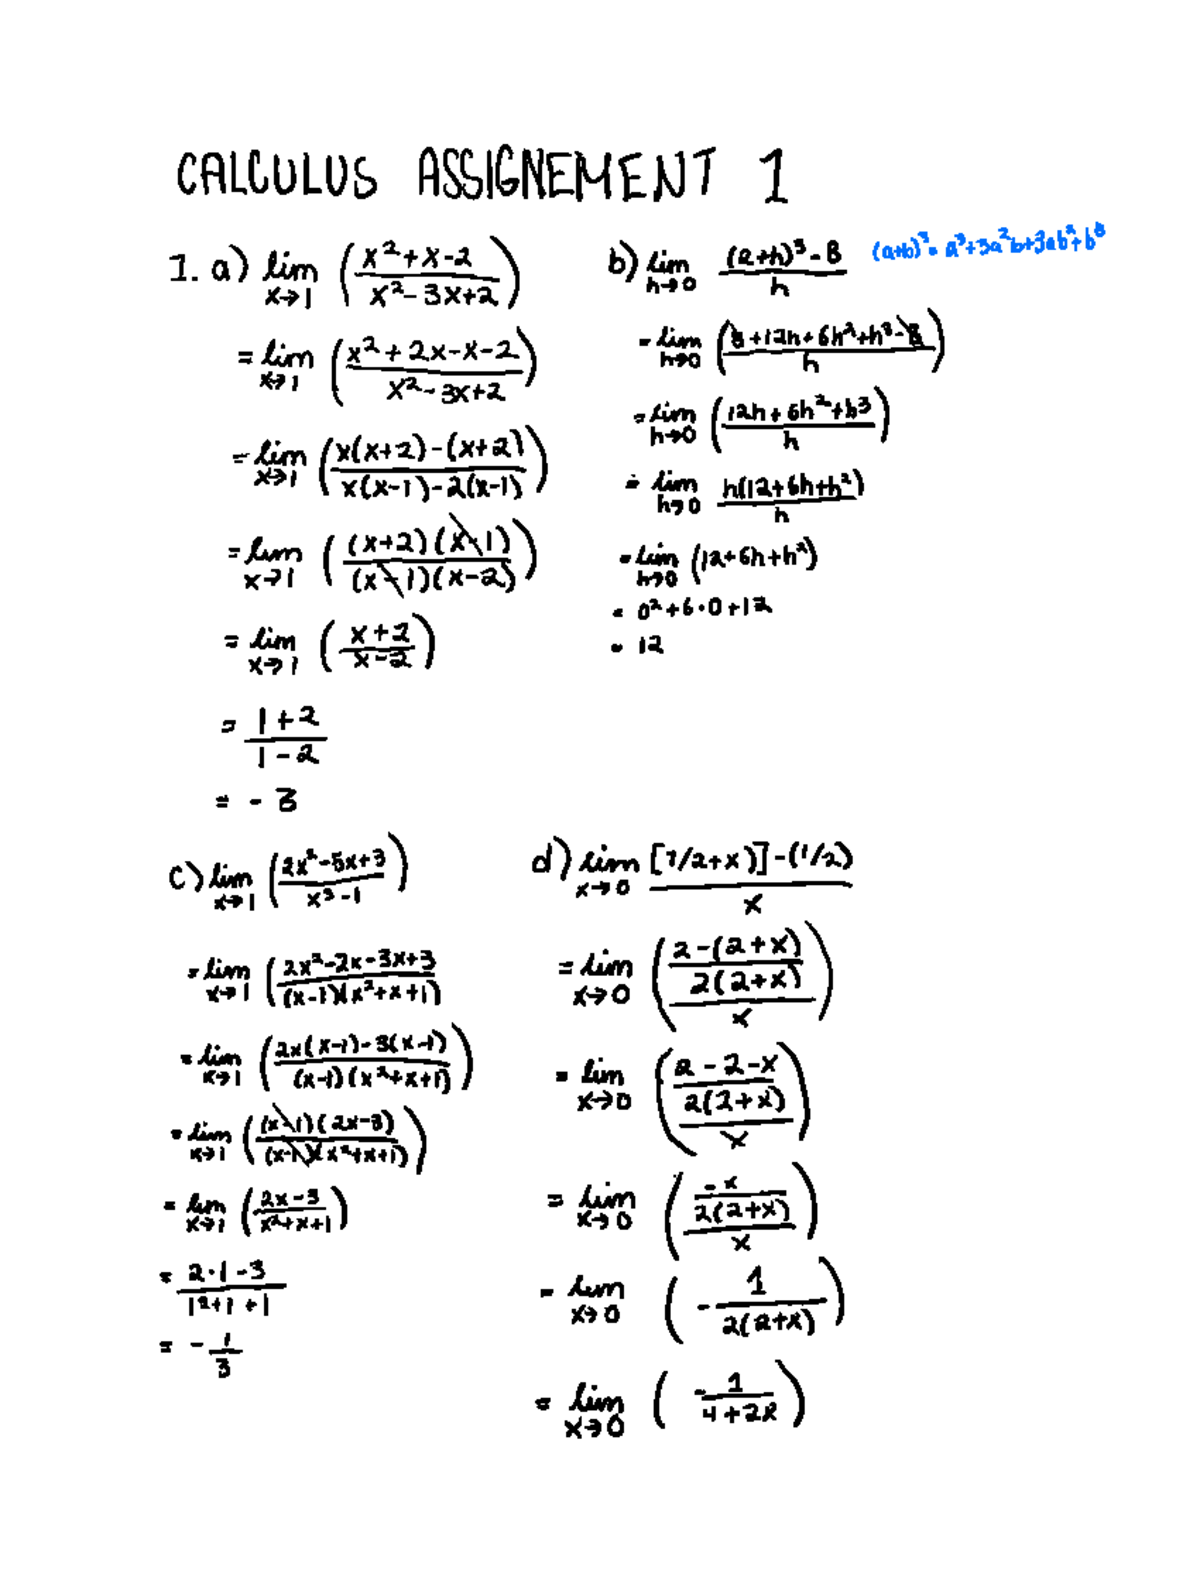 CALCULUS ASSIGNEMENT 1
1. a) lim x→1 ((x²+x-2)/(x²-3x+2))
= lim x→1 ((x²+2x-x-2)/(x²-3x+2))
= lim x→1 ((x(x+2)-(x+2))/(x(x-1)-2(x-1)))
= lim x→1 (((x+2)(x-1))/((x-1)(x-2)))
= lim x→1 ((x+2)/(x-2))
= (1+2)/(1-2)
= -3
b) lim h→0 ((2+h)³-8)/h (a+b)³= a³+3a²b+3ab²+b³
= lim h→0 ((8+12h+6h²+h³-8)/h)
= lim h→0 ((12h+6h²+h³)/h)
= lim h→0 (h(12+6h+h²))/h
= lim h→0 (12+6h+h²)
= 0²+6·0+12
= 12
c) lim x→1 ((2x²-5x+3)/(x³-1))
= lim x→1 ((2x²-2x-3x+3)/((x-1)(x²+x+1)))
= lim x→1 ((2x(x-1)-3(x-1))/((x-1)(x²+x+1)))
= lim x→1 (((x-1)(2x-3))/((x-1)(x²+x+1)))
= lim x→1 ((2x-3)/(x²+x+1))
= (2·1-3)/(1²+1+1)
= -1/3
d) lim x→0 ([1/2+x)]-(1/2))/x
= lim x→0 (((2-(2+x))/(2(2+x)))/x)
= lim x→0 (((2-2-x)/(2(2+x)))/x)
= lim x→0 ((-x/(2(2+x)))/x)
= lim x→0 (-1/(2(2+x)))
= lim x→0 (-1/(4+2x))